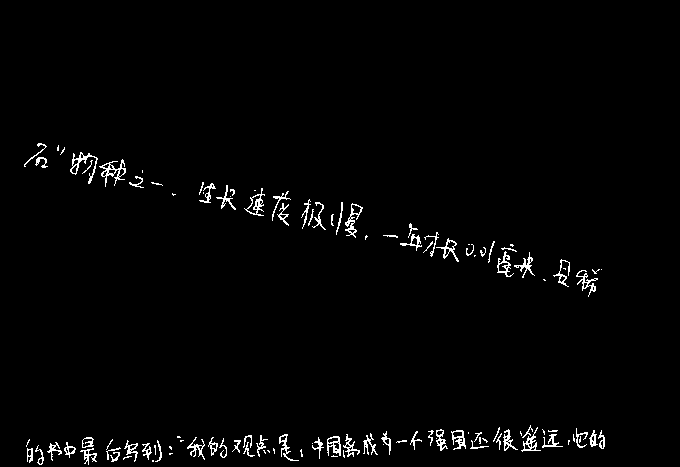 石"物种之一、生长速度极慢,一年才长0.01毫米、且稀
的书中最后写到:"我的观点是,中国离成为一个强国还很遥远,它的